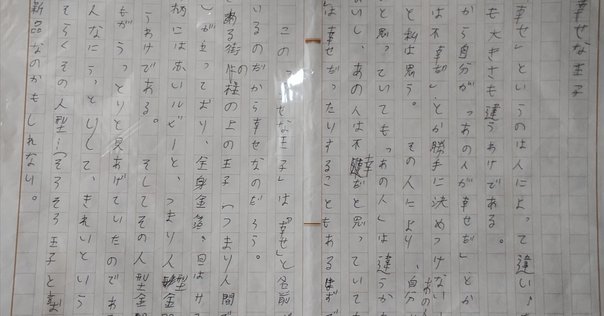 幸せな王子
幸せ」というのは人によって違い、
も大きさも違うわけである。
から自分が「あの人が幸せだ」とか
は不幸だ」とか勝手に決めつけない
と私は思う。 その人により、自分
と思っていても「あの人」は違うか
いし、あの人は不幸だと思っていても
は幸せだったりすることもあるはずで
この「 せな王子」は「幸せ」と名前
いるのだから幸せなのだろう。
ある街の柱の上の王子(つまり人間で
し)が立っており、全身金箔、目はサ
柄には赤いルビーと、つまり人型金
うわけである。 そしてその人型金
もがうっとりと見あげていたのであ
人なにうっとりして、きれいという
そらくその人型…(そろそろ王子と
新品なのかもしれない。